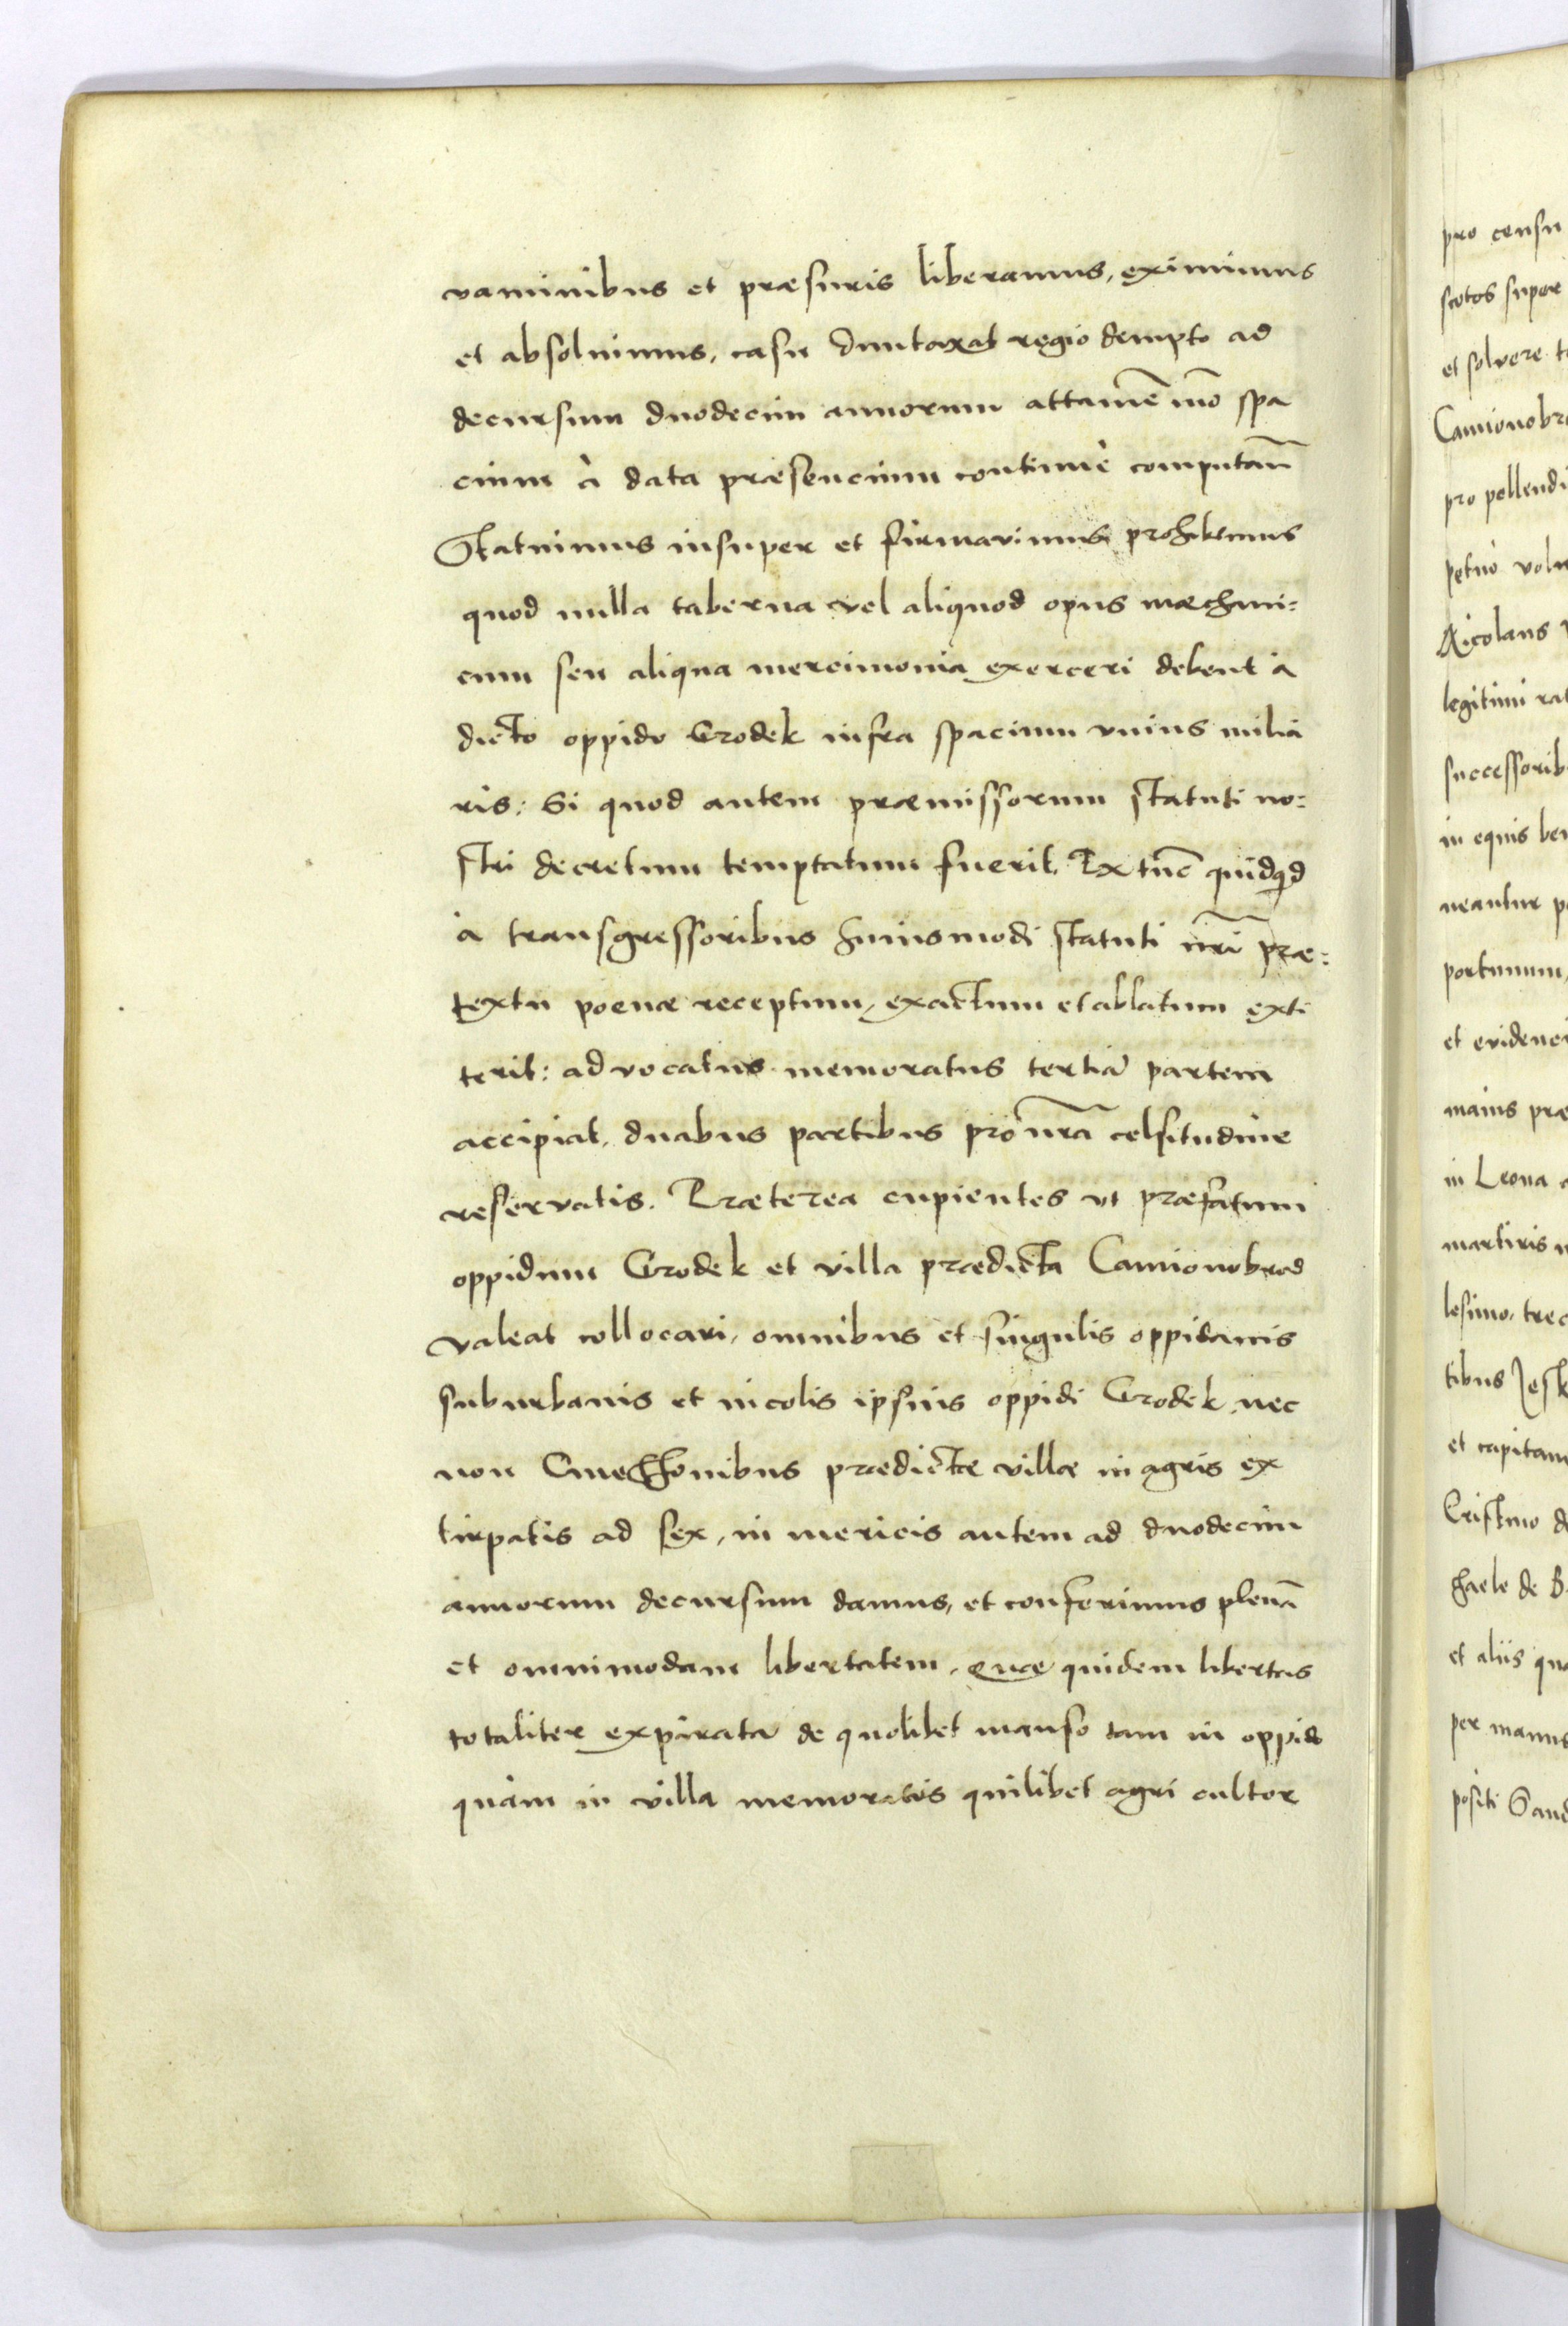 vaminibus et præsuris liberamus, eximimus
et absoluimus, casu duntaxat regio dempto ad
decursum duodecim annorum attamē mō spa
cium à data præsencium continuè computan̄
Statuimus insuper et firmauimus prohibemus
quod nulla taberna vel aliquod opus mæchani=
cum seu aliqua mercimonia exerceri debent à
dicto oppido Grodek infra spacium vnius milia
ris: Si quod autem præmissorum statuti no=
stri decretum temptatum fuerit, Ex tūc quidqd
à transgressoribus huiusmodi statuti nr̄i præ=
textu poenæ receptum, exactum et ablatum exti
terit: aduocatus memoratus tertiā partem
accipiat, duabus partibus pro nr̄a celsitudine
reseruatis. Præterea cupientes vt præfatum
oppidum Grodek et villa prædicta Camionobrod
valeat collocari, omnibus et singulis oppidanis
suburbanis et incolis ipsius oppidi Grodek, nec
non Cmethonibus prædictæ villæ in agris ex
tirpatis ad sex, in mericis autem ad duodecim
annorum decursum damus, et conferimus plenā
et omnimodam libertatem, quæ quidem libertas
totaliter expirata de quolibet manso tam in oppido
quàm in villa memoratis quilibet agri cultor
pro censu
scotos super
et soluere
Camionobr
pro pellendi
petuò volu
Nicolaus
legitimi
successorib
in equis
neantur
portunum,
et euidenci
maius præ
in Leona
martiris
lesimo, trec
tibus Jesk
et capitane
Cristino de
haele de
et aliis
per manus
positi Sand